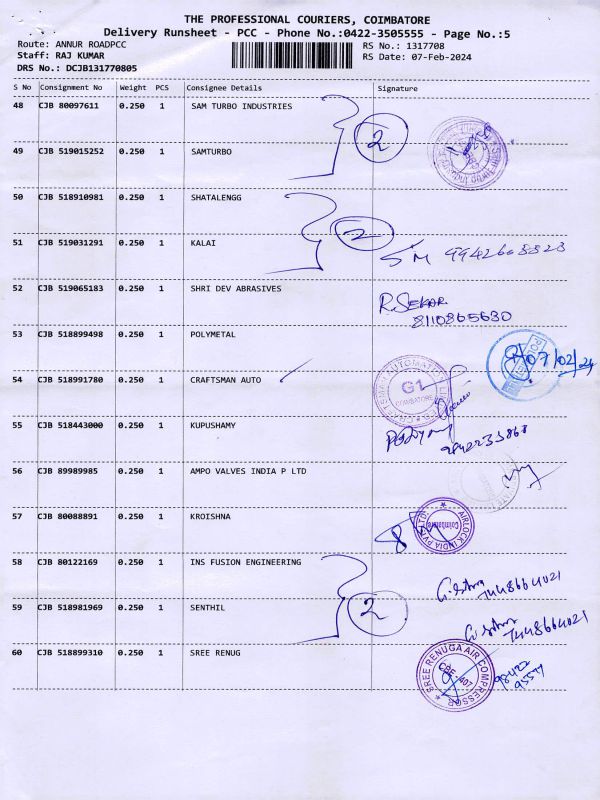 THE PROFESSIONAL COURIERS, COIMBATORE
Delivery Runsheet - PCC - Phone No.:0422-3505555 - Page No.:5
Route: ANNUR ROADPCC RS No.: 1317708
Staff: RAJ KUMAR RS Date: 07-Feb-2024
DRS No.: DCJB131770805
S No Consignment No Weight PCS Consignee Details Signature
48 CJB 80097611 0.250 1 SAM TURBO INDUSTRIES
2
49 CJB 519015252 0.250 1 SAMTURBO
50 CJB 518910981 0.250 1 SHATALENGG
2
51 CJB 519031291 0.250 1 KALAI
9942608823
52 CJB 519065183 0.250 1 SHRI DEV ABRASIVES
R. SEKAR
8110865630
53 CJB 518899498 0.250 1 POLYMETAL
07/02/24
54 CJB 518991780 0.250 1 CRAFTSMAN AUTO
CRAFTSMAN AUTOMATION
G1
COIMBATORE
55 CJB 518443000 0.250 1 KUPUSHAMY
56 CJB 89989985 0.250 1 AMPO VALVES INDIA P LTD
57 CJB 80088891 0.250 1 KROISHNA
AIRLOCK INDIA PVT LTD
Coimbatore
58 CJB 80122169 0.250 1 INS FUSION ENGINEERING
7448664021
2
59 CJB 518981969 0.250 1 SENTHIL
7448664021
60 CJB 518899310 0.250 1 SREE RENUG
SREE RENUGA AIR COMPRESSOR
CBE-407
98422
95574